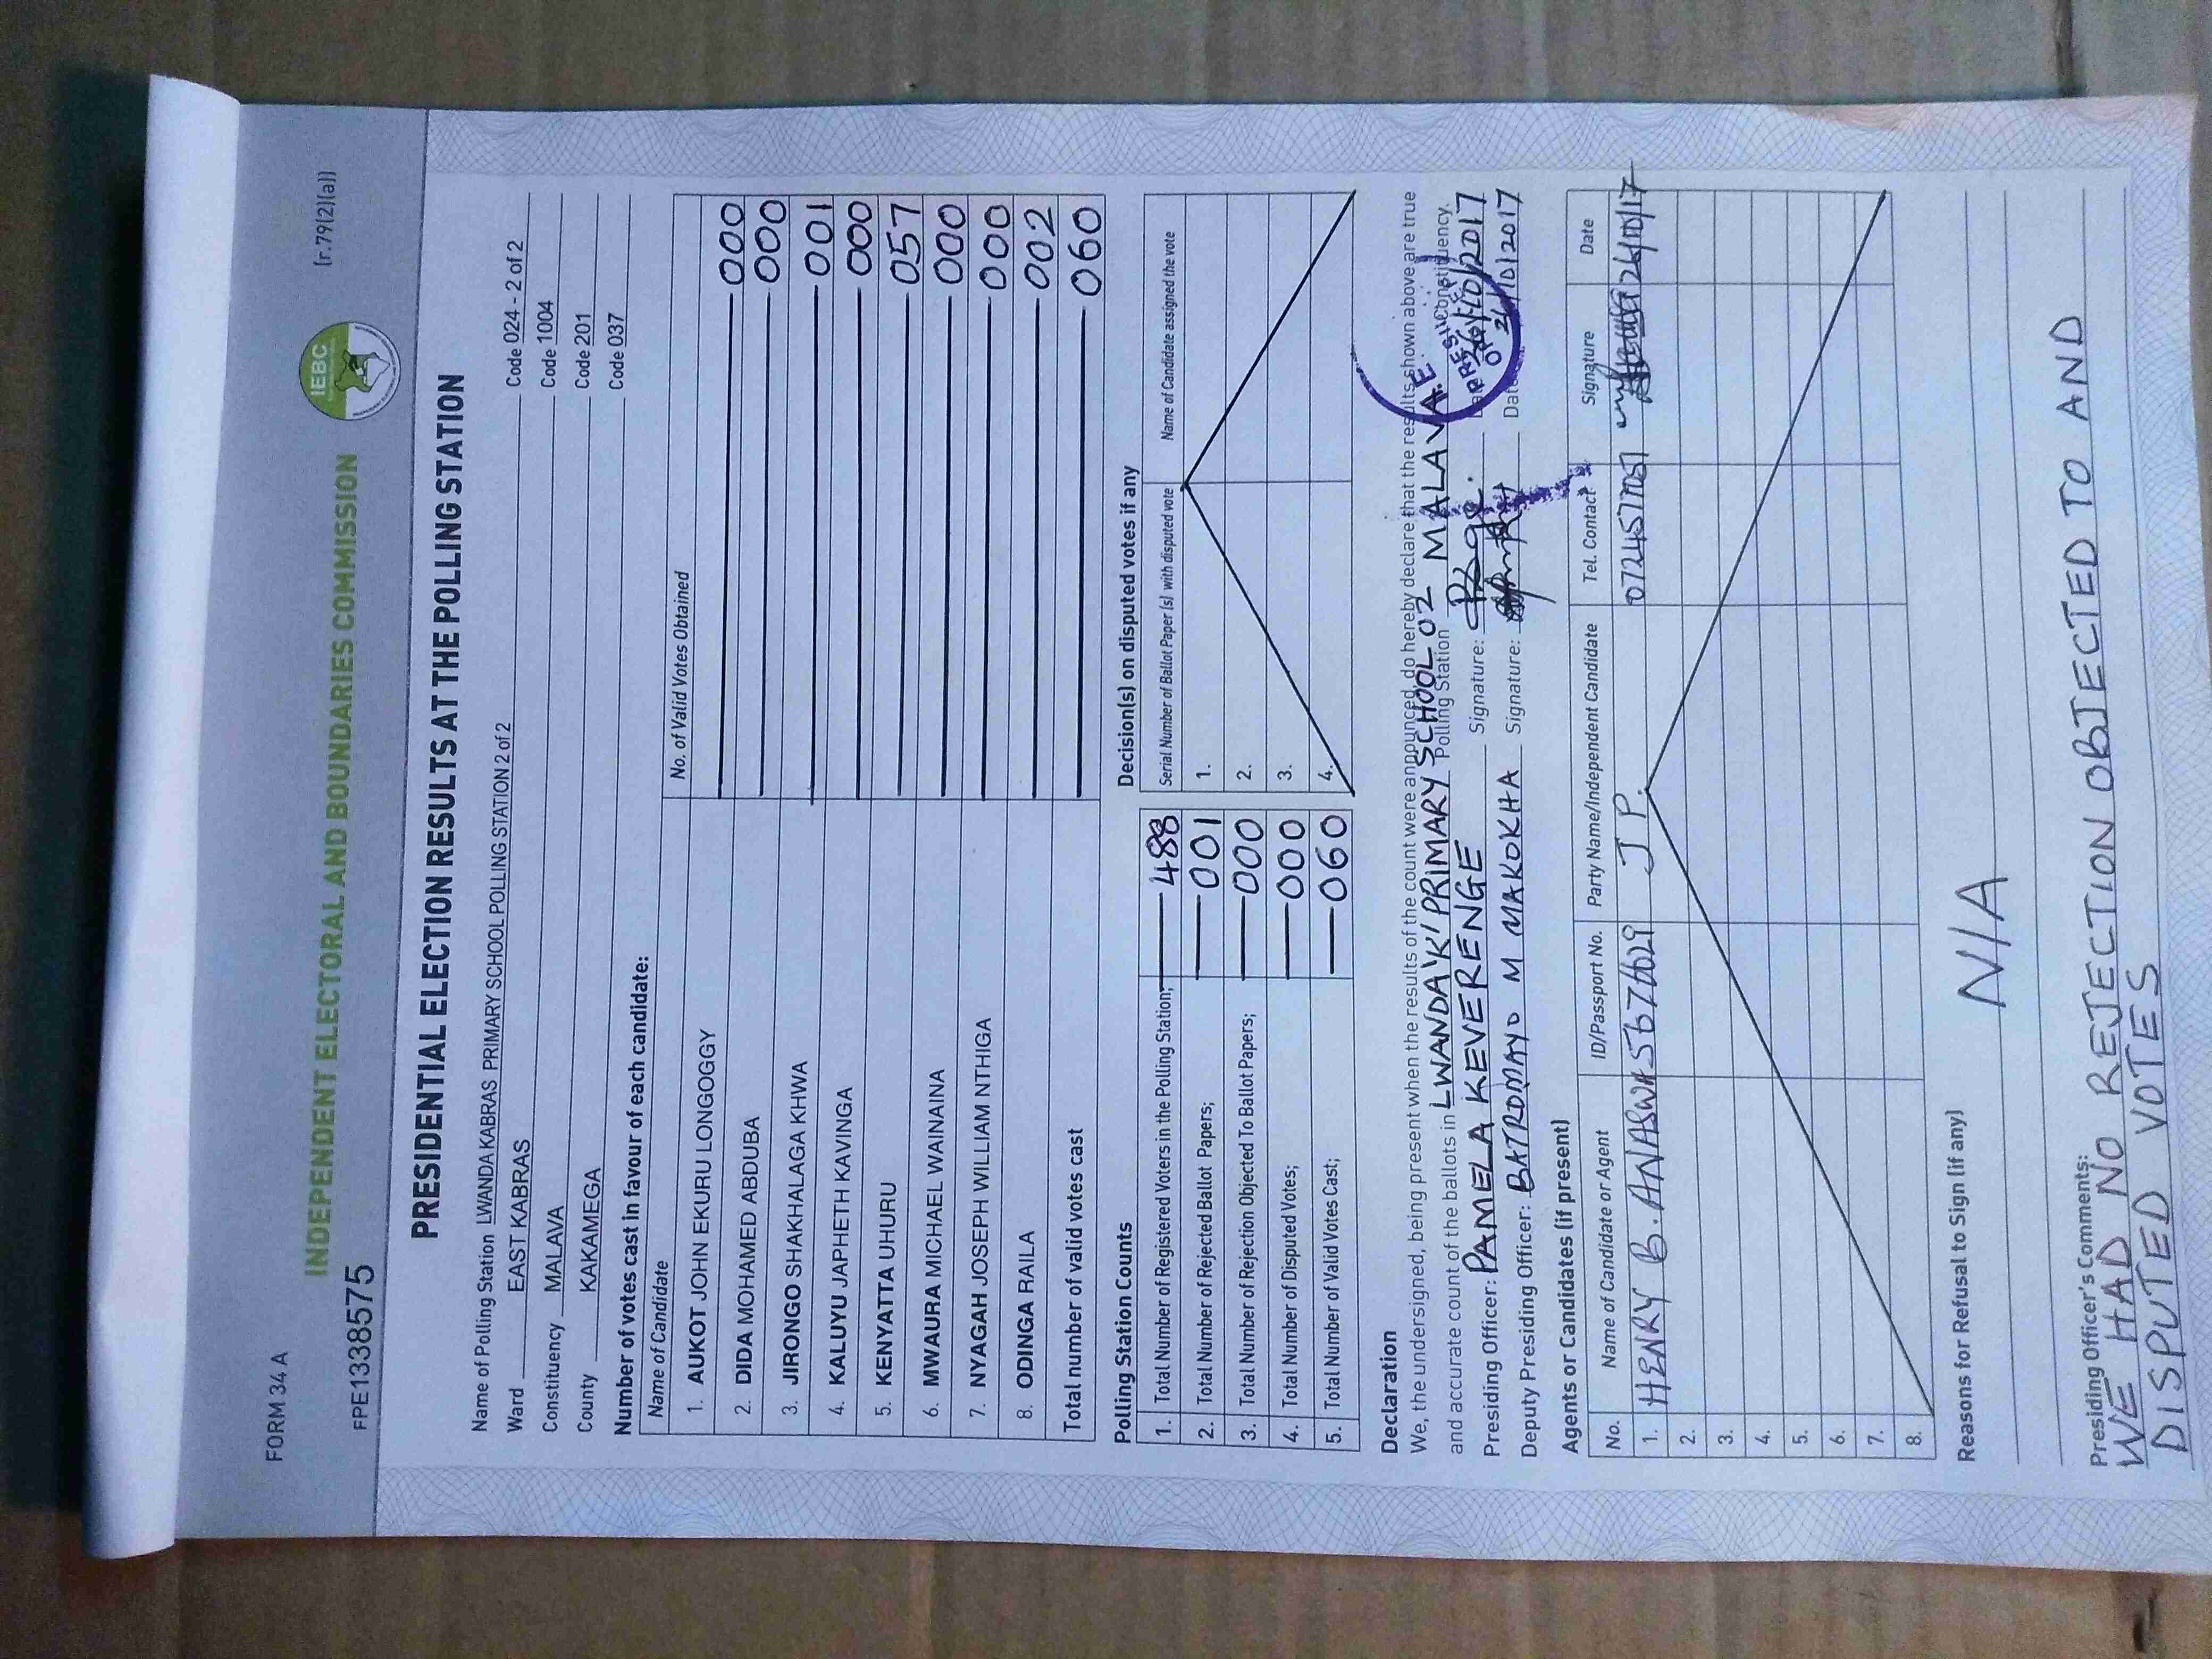 FORM 34 A
(r.79(2)(a))
IEBC
INDEPENDENT ELECTORAL AND BOUNDARIES COMMISSION
FPE1338575
PRESIDENTIAL ELECTION RESULTS AT THE POLLING STATION
Name of Polling Station LWANDA KABRAS PRIMARY SCHOOL POLLING STATION 2 of 2 Code 024 - 2 of 2
Ward EAST KABRAS Code 1004
Constituency MALAVA Code 201
County KAKAMEGA Code 037
Number of votes cast in favour of each candidate:
Name of Candidate No. of Valid Votes Obtained
1. AUKOT JOHN EKURU LONGOGGY 000
2. DIDA MOHAMED ABDUBA 000
3. JIRONGO SHAKHALAGA KHWA 001
4. KALUYU JAPHETH KAVINGA 000
5. KENYATTA UHURU 057
6. MWAURA MICHAEL WAINAINA 000
7. NYAGAH JOSEPH WILLIAM NTHIGA 000
8. ODINGA RAILA 002
Total number of valid votes cast 060
Polling Station Counts
1. Total Number of Registered Voters in the Polling Station; 488
2. Total Number of Rejected Ballot Papers; 001
3. Total Number of Rejection Objected To Ballot Papers; 000
4. Total Number of Disputed Votes; 000
5. Total Number of Valid Votes Cast; 060
Decision(s) on disputed votes if any
Serial Number of Ballot Paper (s) with disputed vote Name of Candidate assigned the vote
1.
2.
3.
4.
Declaration
We, the undersigned, being present when the results of the count were announced, do hereby declare that the results shown above are true
and accurate count of the ballots in LWANDA 'K' PRIMARY SCHOOL 02 Polling Station MALAVA Constituency.
Presiding Officer: PAMELA KEVERENGE Signature: Date 26/10/2017
Deputy Presiding Officer: BATROMAYO M MAKOKHA Signature: Date 26/10/2017
Agents or Candidates (if present)
No. Name of Candidate or Agent ID/Passport No. Party Name/Independent Candidate Tel. Contact Signature Date
1. HENRY B. J P. 26/10/17
2.
3.
4.
5.
6.
7.
8.
Reasons for Refusal to Sign (if any)
N/A
Presiding Officer's Comments:
WE HAD NO REJECTION OBJECTED TO AND
DISPUTED VOTES